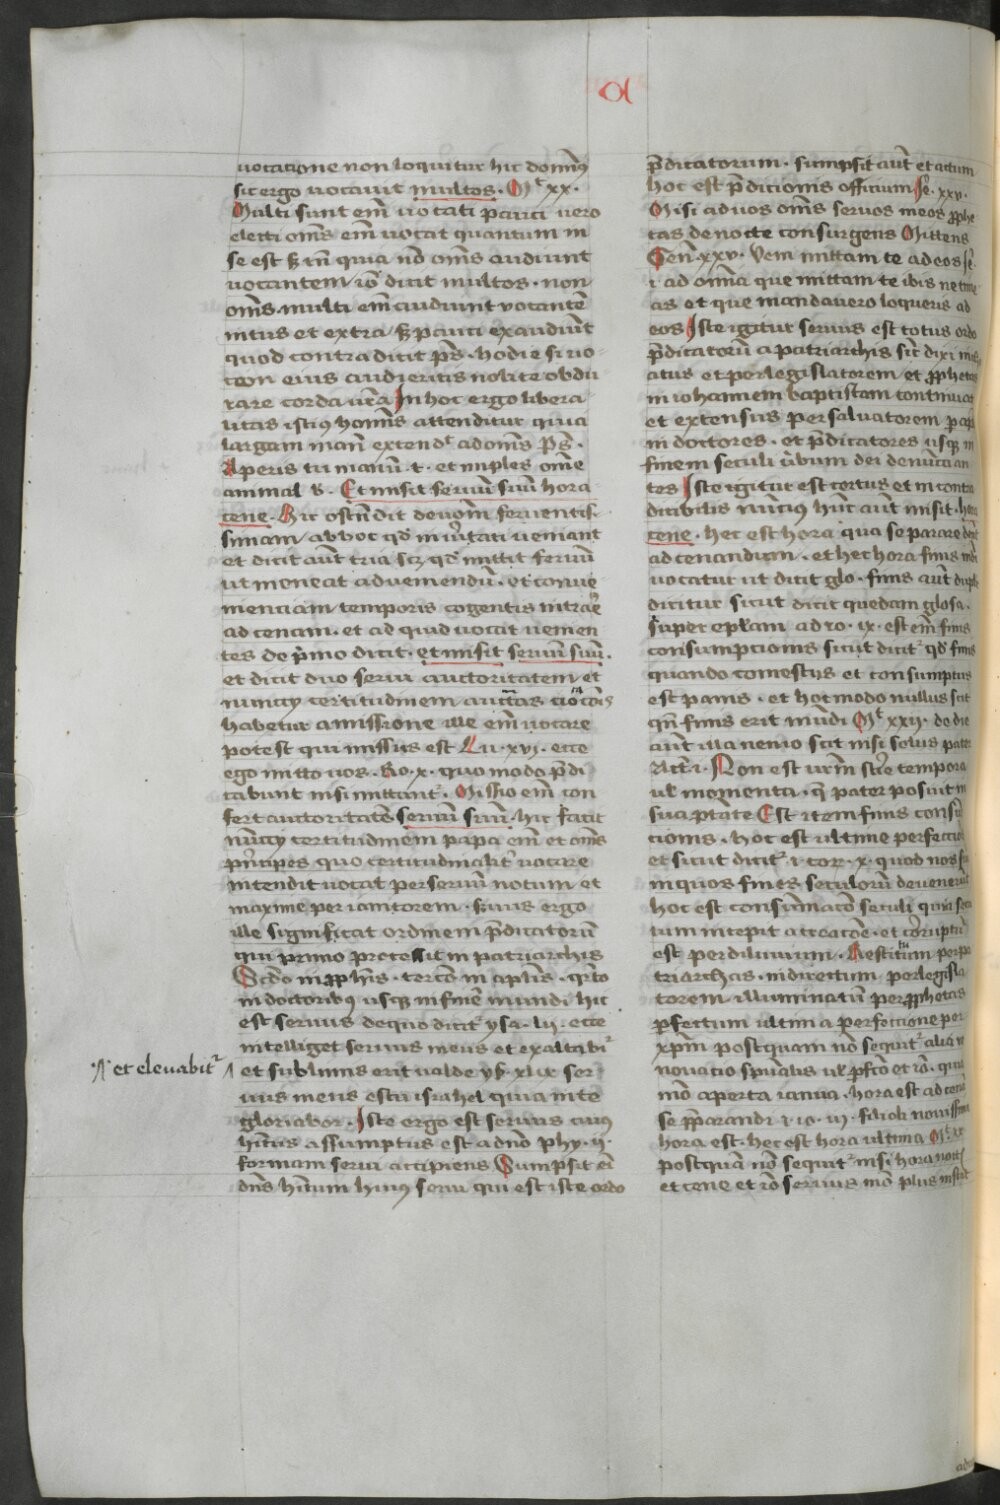 vocatione non loquitur hic domin9
sic ergo vocavit multos. Mt xx.
Multi sunt em̄ vocati pauci vero
electi om̄s em̄ vocat quantum in
se est s; tn̄ quia nō om̄s audiunt
vocantem iō dicit multos. non
om̄s. multi em̄ audiunt vocantē
intus et extra s; pauci exaudiūt
quod contra dicit p̄s. hodie si vo
cem eius audieritis nolite obdu
rare corda vr̄a In hoc ergo libera
litas istius hominis attenditur quia
largam manū extendt ad om̄s p̄s.
Aperis tu manū. t. et imples om̄e
animal b. Et misit servū suū hora
cene. Hic ostendit devom̄ ferventis
simam
et dicit aūt tria scz qd mittit servū
ut moneat ad veniendū. et conve
nienciam temporis cogentis intrare
ad cenam. et ad quid vocat venien
tes de p̄mo dicit. et misit servū suū.
et dicit duo servi auctoritatem et
nuncy certitudinem
habetur a missione ille em̄ vocare
potest qui missus est Lu. xvi. ecce
ego mitto vos. Ro. x. quomodo p̄di
cabunt nisi mittantr. Missio em̄ con
fert auctoritatē servū suū. hic facit
nūcy certitudinem papa em̄ et om̄s
p̄ncipes quo certitudinalitr vocare
intendit vocat per servū notum et
maxime per ianitorem. servus ergo
ille significat ordinem p̄dicatorū
qui primo processit in patriarchis
Scdo in pph̄is. tercō in aplis. qrto
in doctorib9 usq; in finē mundi hic
est servus de quo dicitr ysa. lii. ecce
intelliget servus meus et exaltabitr
et elevabitr
et sublimis erit valde ys. xlix ser
vus meus es tu israhel quia in te
gloriabor. Iste ergo est servus cui9
hitus assumptus est a dn̄o phy. ii.
formam servi accipiens Sumpsit ei
dn̄s hitum huius servi qui est iste ordo
p̄dicatorum. sumpsit aūt et actum
hoc est p̄dicionis officium Je. xxv.
Misi ad vos om̄s servos meos pphe
tas de nocte consurgens Mittens
Gen̄. xxv. veni mittam te ad eos
i. ad om̄ia que mittam te ibis ne time
as et que mandavero loqueris ad
eos Iste igitur servus est totus ordo
p̄dicatorū a patriarchis sic dixi
et per legislatorem et pphetas
in iohannem baptistam
et extensus per salvatorem
in doctores. et p̄dicatores usq; in
finem seculi vbum dei denūcian
tes Iste igitur est certus et in contra
dicibilis nuncius hūc aūt misit. hora
cene. hec est hora qua se parare
ad cenandum. et hec hora finis
vocatur ut dicit glo. finis aūt
dicitur sicut dicit quedam glosa.
super eplam ad ro. ix. est em̄ finis
consumpcionis sicut dicitr qd finis
quando comestus et consumptus
est panis. et hoc modo nullus scit
qn̄ finis erit mūdi Mt xxii. de die
aūt illa nemo scit nisi solus pater
Act. i. Non est vr̄m scire tempora
vl momenta. q̄ pater posuit in
sua ptate Est item finis
cionis. hoc est ultime
et sicut dicitr. i. cor. x. quod nos
in quos fines seculorū devenerūt
hoc est
incepit a creacōe. et corruptū
est per diluvium. Restitutum per pa
triarchas. in directum per legisla
torem. illuminatū per pphetas
pfectum ultima perfectione per
xpm̄ postquam nō sequitr alia
novatio
aperta ianua. hora est ad cenā
se p̄parandi filioli novissima
hora est. hec est hora ultima
postquā nō sequitr nisi hora noctis
et cene et iō servus mō plus